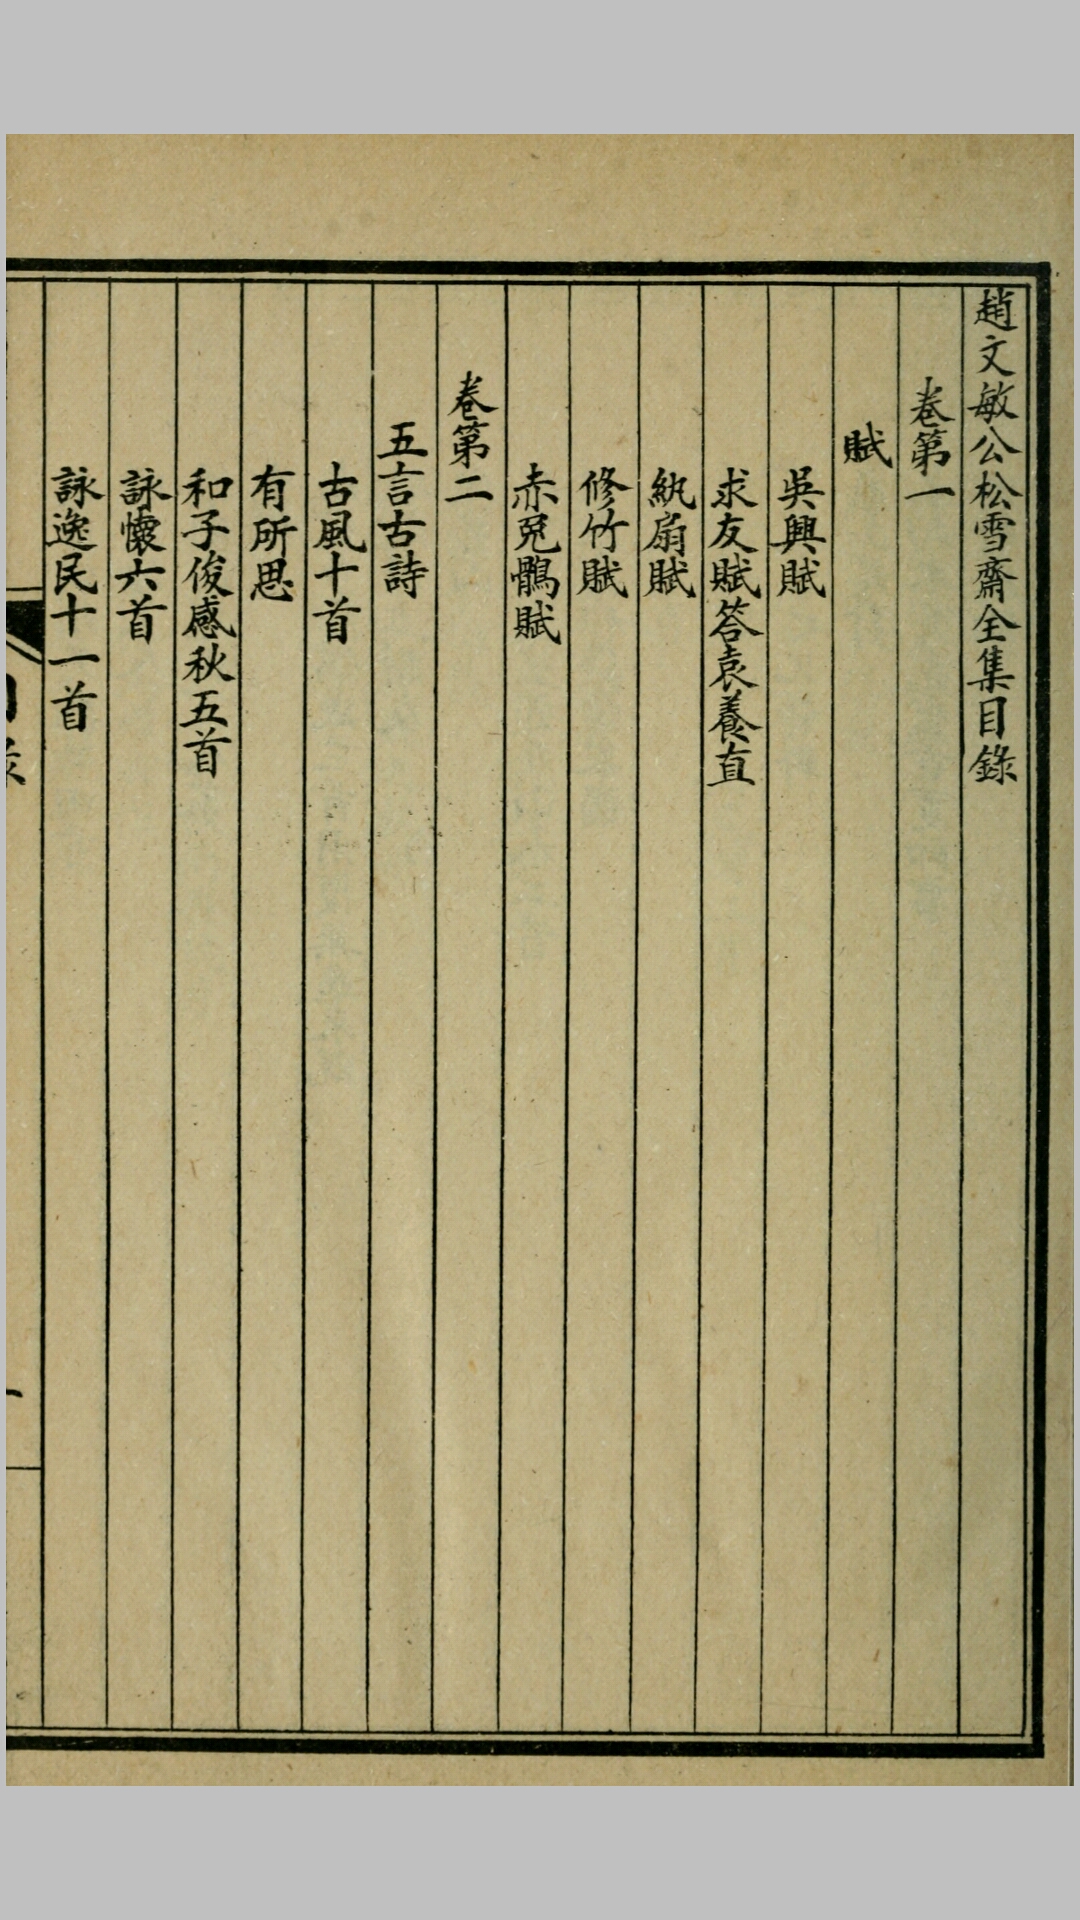 趙文敏公松雪齋全集目錄
卷第一
賦
吳興賦
求友賦答袁養直
紈扇賦
修竹賦
赤兔鶻賦
卷第二
五言古詩
古風十首
有所思
和子俊感秋五首
詠懷六首
詠逸民十一首